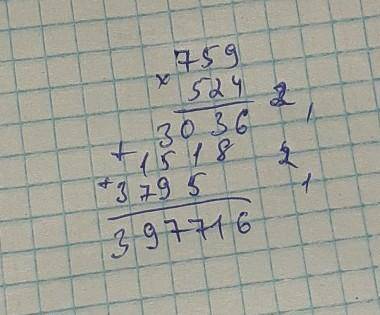 759
× 524 2,
3036
+ 1518 2,
+ 3795
397716